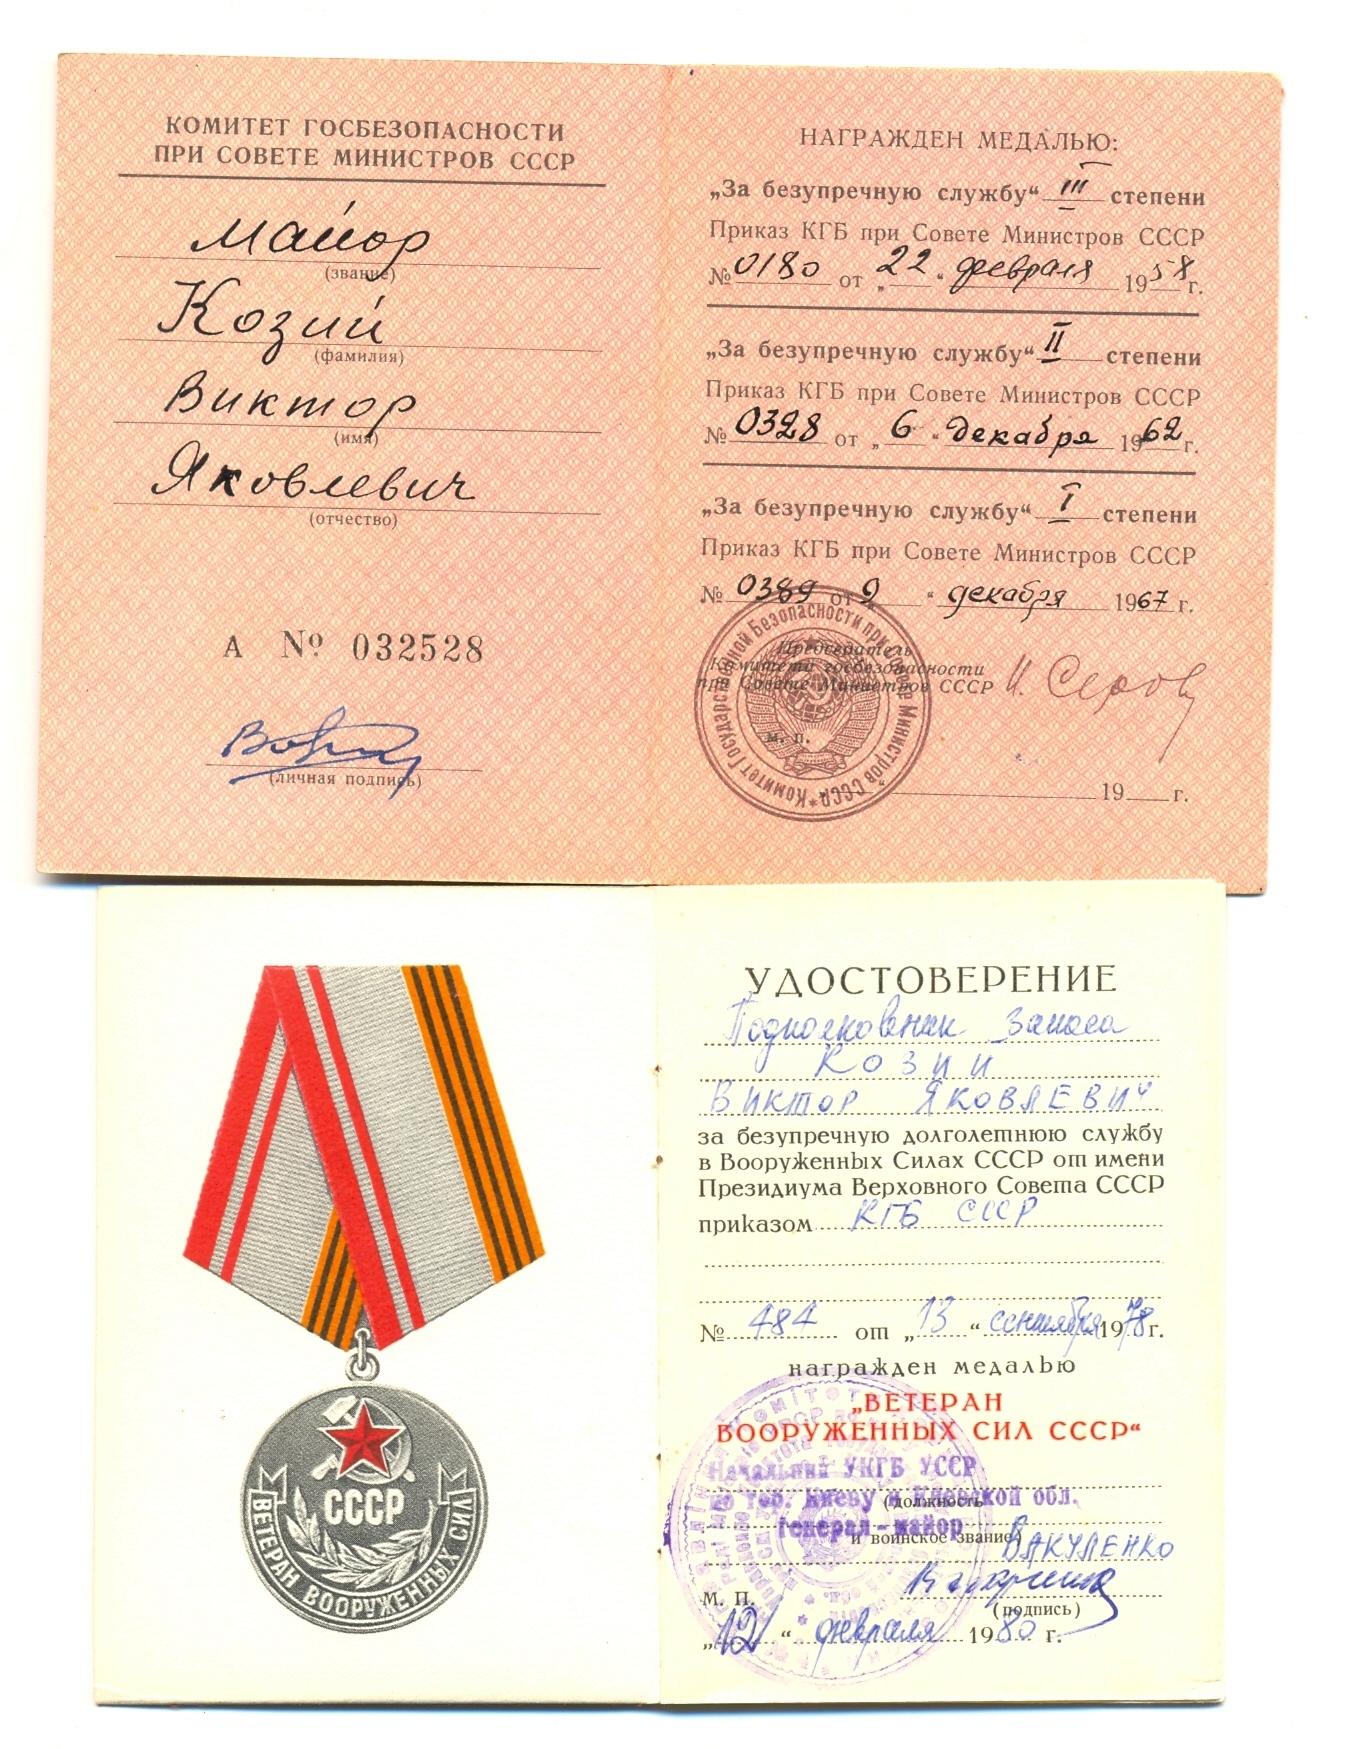 КОМИТЕТ ГОСБЕЗОПАСНОСТИ
ПРИ СОВЕТЕ МИНИСТРОВ СССР
Майор
(звание)
Козий
(фамилия)
Виктор
(имя)
Яковлевич
(отчество)
А № 032528
(личная подпись)
НАГРАЖДЕН МЕДАЛЬЮ:
„За безупречную службу“ III степени
Приказ КГБ при Совете Министров СССР
№ 0180 от „22“ февраля 1958 г.
„За безупречную службу“ II степени
Приказ КГБ при Совете Министров СССР
№ 0328 от „6“ декабря 1962 г.
„За безупречную службу“ I степени
Приказ КГБ при Совете Министров СССР
№ 0389 от „9“ декабря 1967 г.
Председатель
Комитета госбезопасности
при Совете Министров СССР И. Серов
м. п.
Комитет Государственной Безопасности при Совете Министров СССР
19 г.
СССР
ВЕТЕРАН ВООРУЖЕННЫХ СИЛ
УДОСТОВЕРЕНИЕ
Подполковник запаса
КОЗИЙ
ВИКТОР ЯКОВЛЕВИЧ
за безупречную долголетнюю службу
в Вооруженных Силах СССР от имени
Президиума Верховного Совета СССР
приказом КГБ СССР
№ 484 от „13“ сентября 1978 г.
награжден медалью
„ВЕТЕРАН
ВООРУЖЕННЫХ СИЛ СССР“
Начальник УКГБ УССР
по гор. Киеву и Киевской обл.
(должность
генерал-майор
и воинское звание)
ВАКУЛЕНКО
(подпись)
М. П.
„12“ февраля 1980 г.